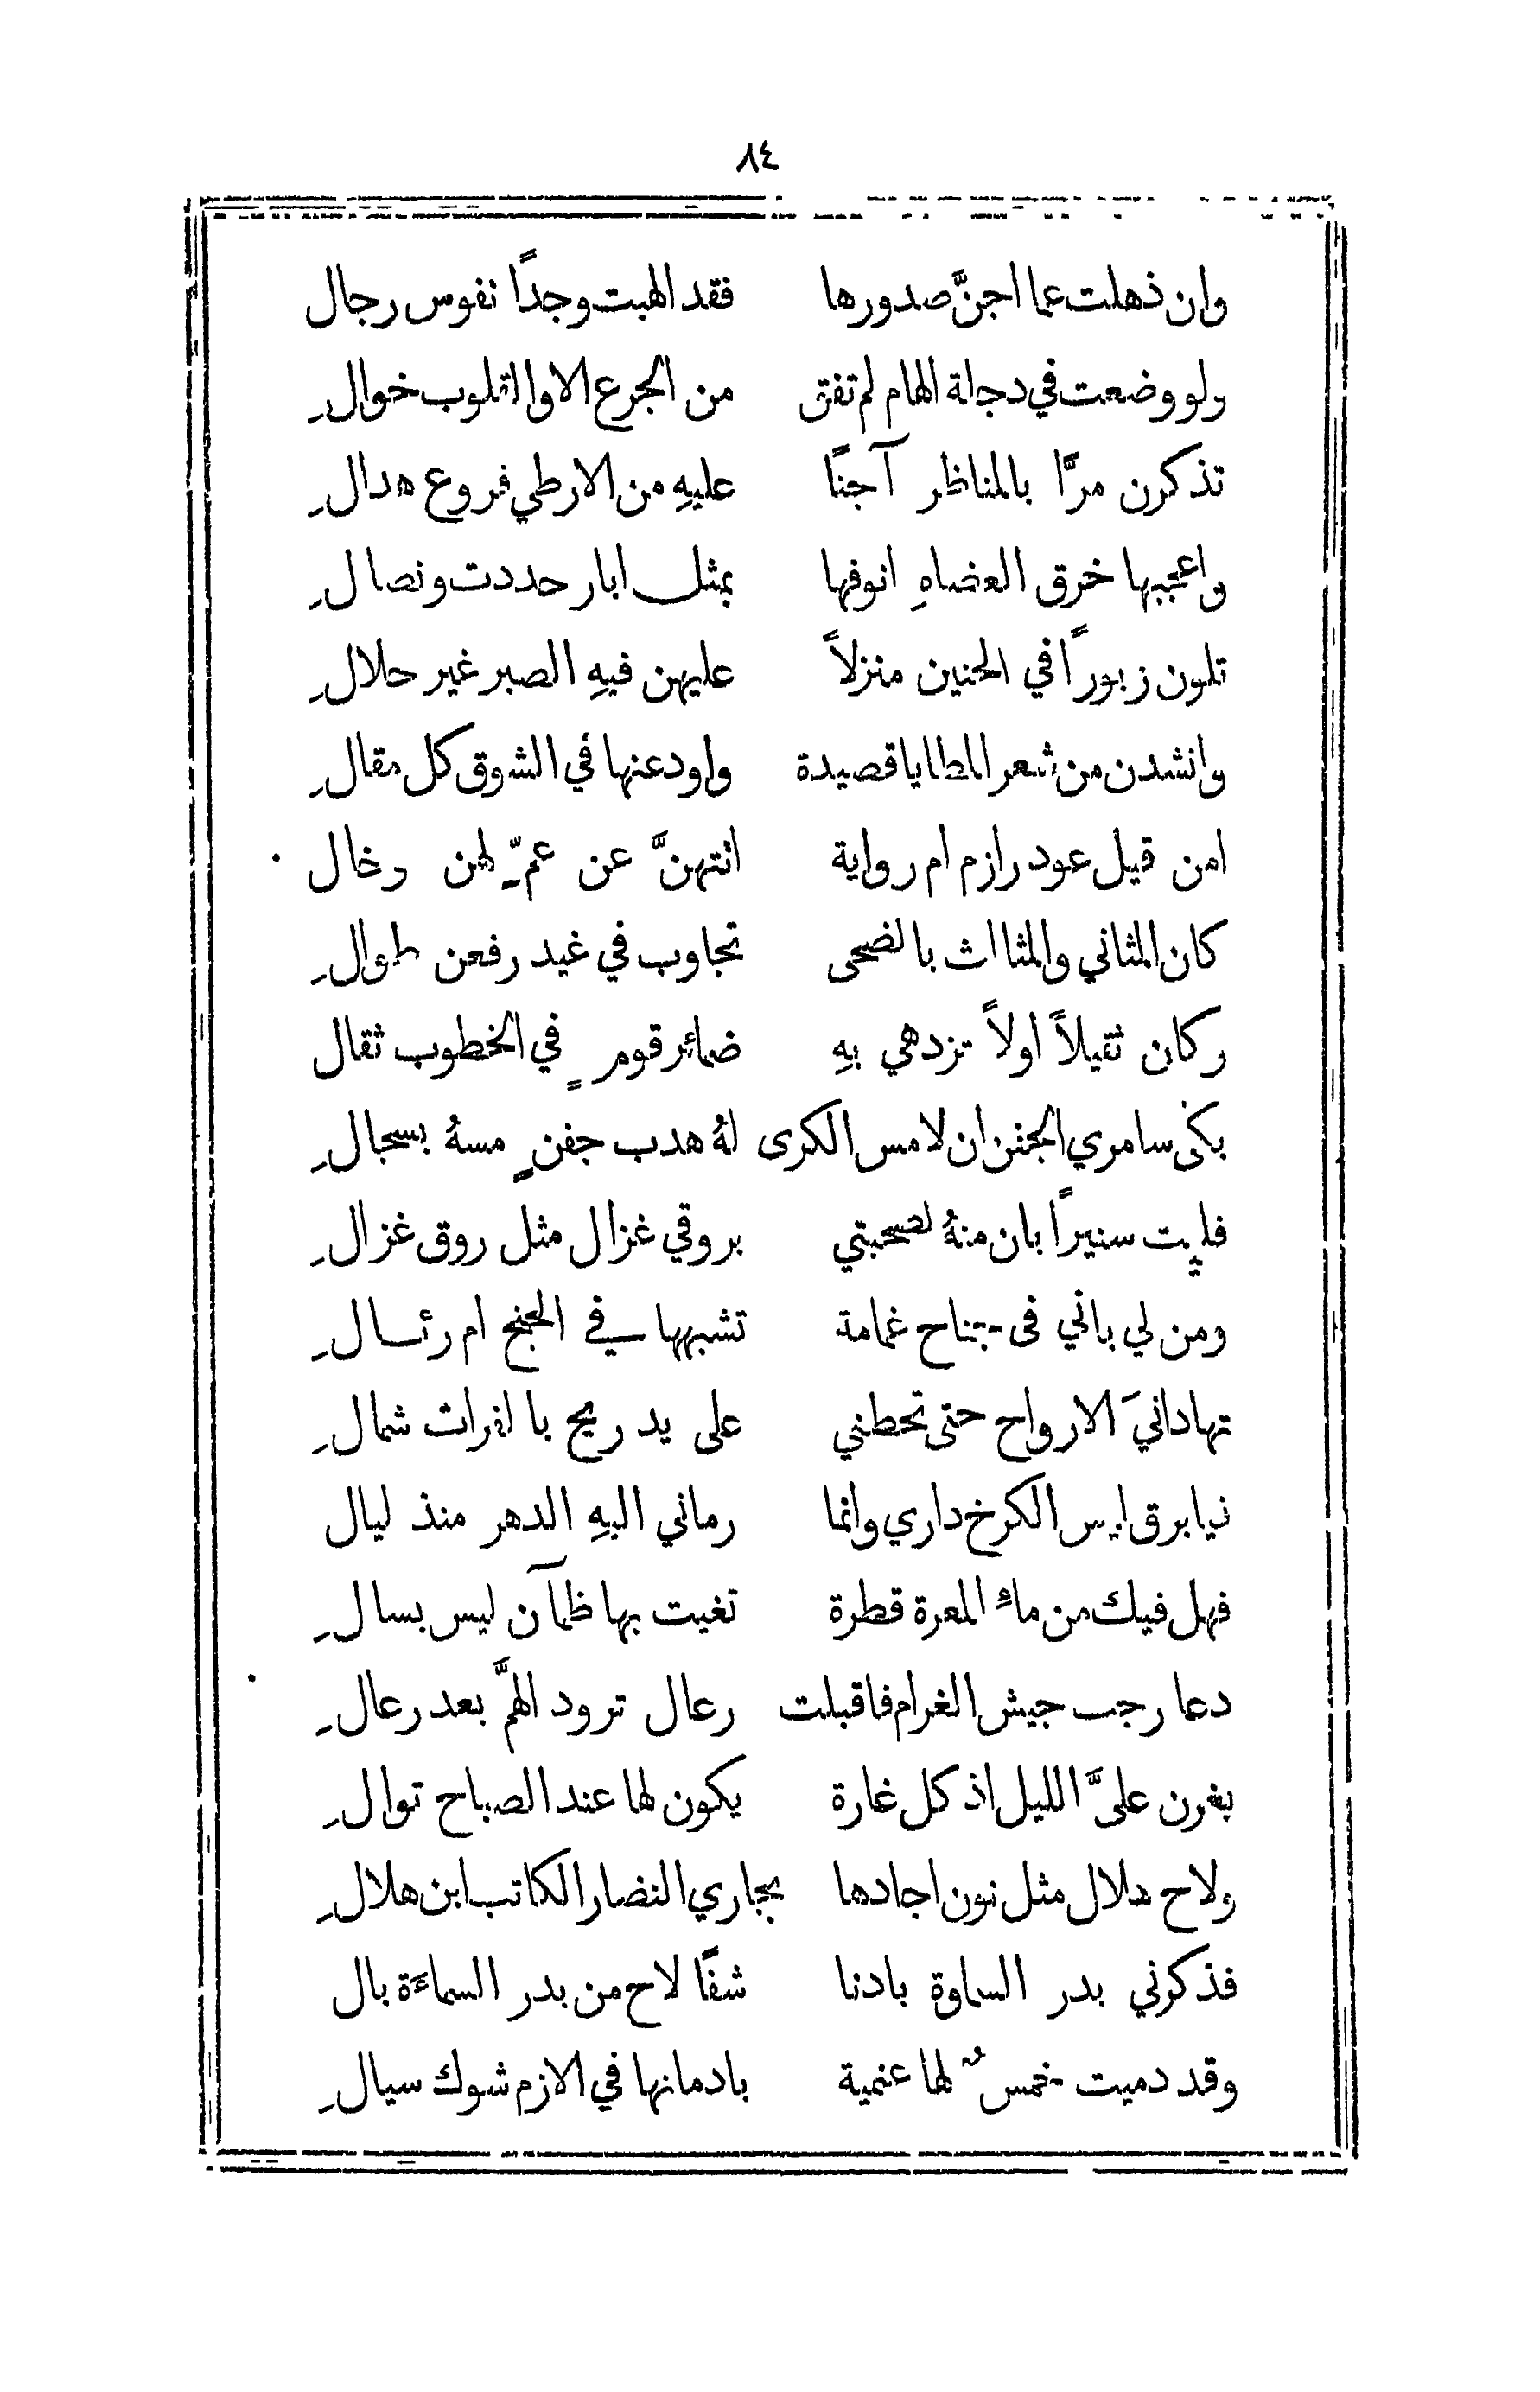 ٨٤
وان ذهلت عما اجنَّ صدورها فقد الهبت وجداً نفوس رجال
ولو وضعت في دجلة الهام لم تفق من الجرع الا والقلوب خوالِ
تذكرن مرًّا بالمناظر آجنًا عليهِ من الارطي فروع هدالِ
واعجبها خرق العضاهِ انوفها بمثل ابار حددت ونصالِ
تلون زبوراً في الحنين منزلاً عليهن فيهِ الصبر غير حلالِ
وانشدن من شعر المطايا قصيدة واودعنها في الشوق كل مقالِ
امن قيل عود رازم ام رواية اتتهنَّ عن عمٍّ لهن وخال
كان المثاني والمثالث بالضحى تجاوب في غيد رفعن طوالِ
وكان ثقيلاً اولاً تزدهي بهِ ضمائر قومٍ في الخطوب ثقال
بكى سامري الجفن ان لامس الكرى لهُ هدب جفنٍ مسهُ بسجالِ
فليت سنيراً بان منهُ لصحبتي بروقي غزال مثل روق غزالِ
ومن لي باني في جناح غمامة تشبهها في الجنح ام رئالِ
تهادانيَ الارواح حتى تحطني على يد ريح بالفرات شمالِ
فيا برق ليس الكرخ داري وانما رماني اليهِ الدهر منذ ليال
فهل فيك من ماءِ المعرة قطرة تغيت بها ظمآن ليس بسالِ
دعا رجب جيش الغرام فاقبلت رعال ترود الهمَّ بعد رعالِ
يغرن عليَّ الليل اذ كل غارة يكون لها عند الصباح توالِ
ولاح هلال مثل نون اجادها بجاري النضار الكاتب ابن هلالِ
فذكرني بدر السماوة بادنا شفًا لاح من بدر السماءَة بال
وقد دميت خمسٌ لها عنمية بادمانها في الازم شوك سيالِ